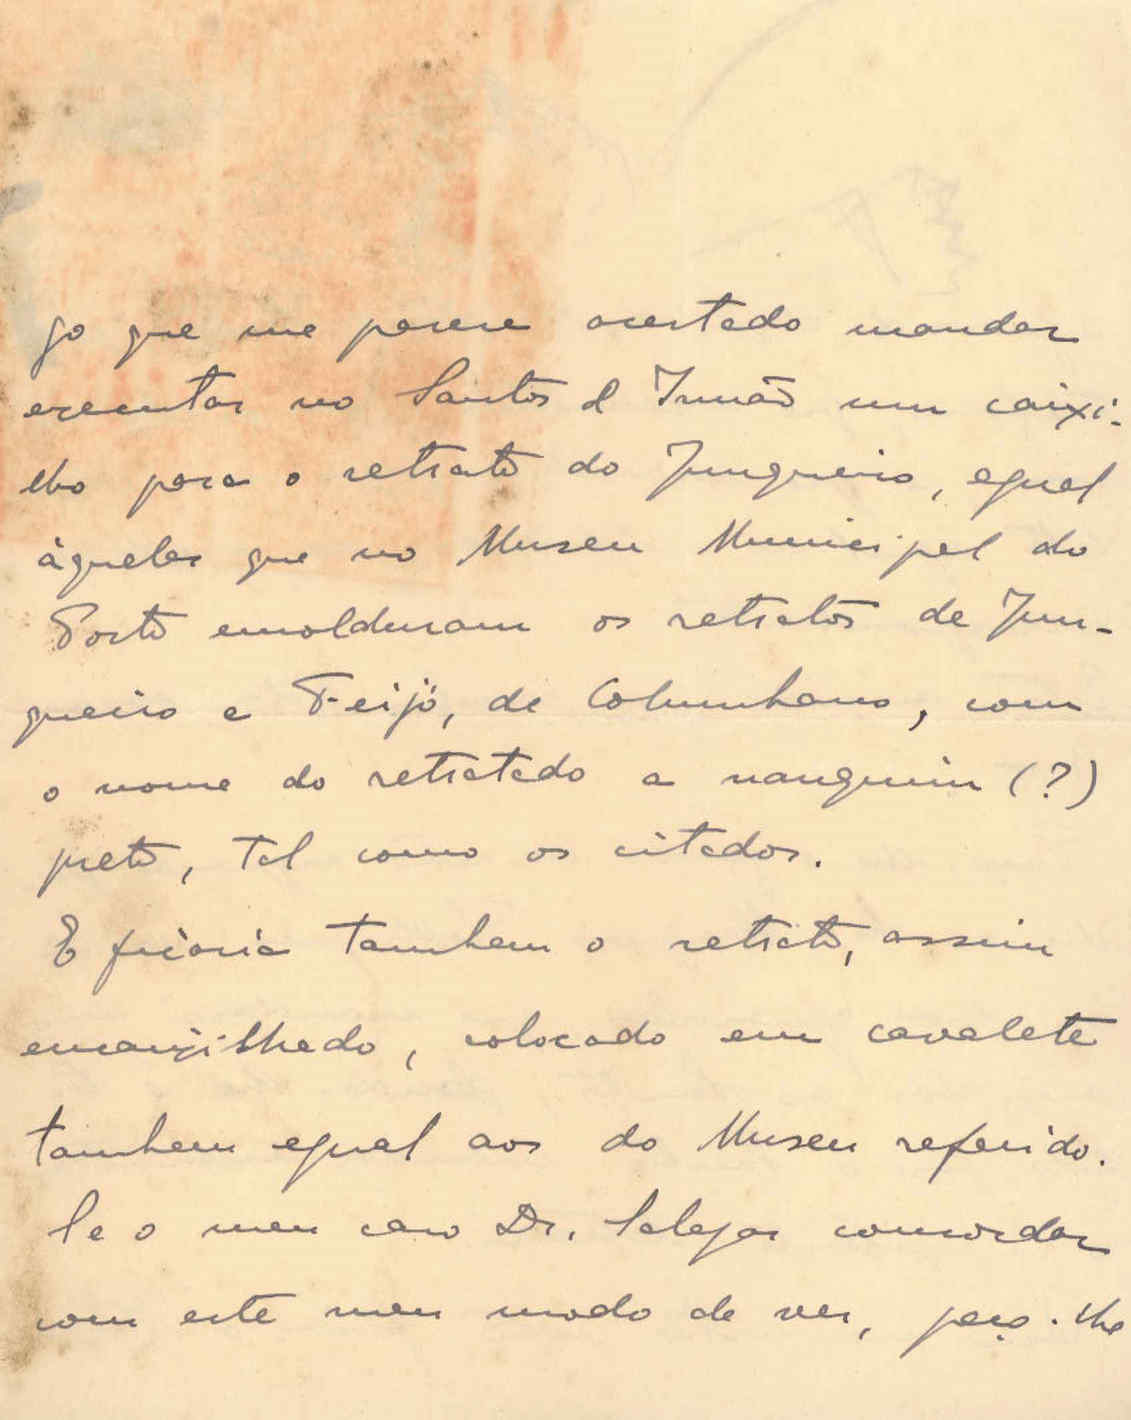 go que me parece acertado mandar
executar no Santos & Irmão um caixi-
lho para o retrato do Junqueiro, egual
àqueles que no Museu Municipal do
Porto emolduram os retratos de Jun-
queiro e Feijó, de Columbano, com
o nome do retratado a nanquim (?)
preto, tal como os citados.
E ficaria tambem o retrato, assim
encaixilhado, colocado em cavalete
tambem egual aos do Museu referido.
Se o meu caro Dr. Salazar concordar
com este meu modo de ver, peço-lhe